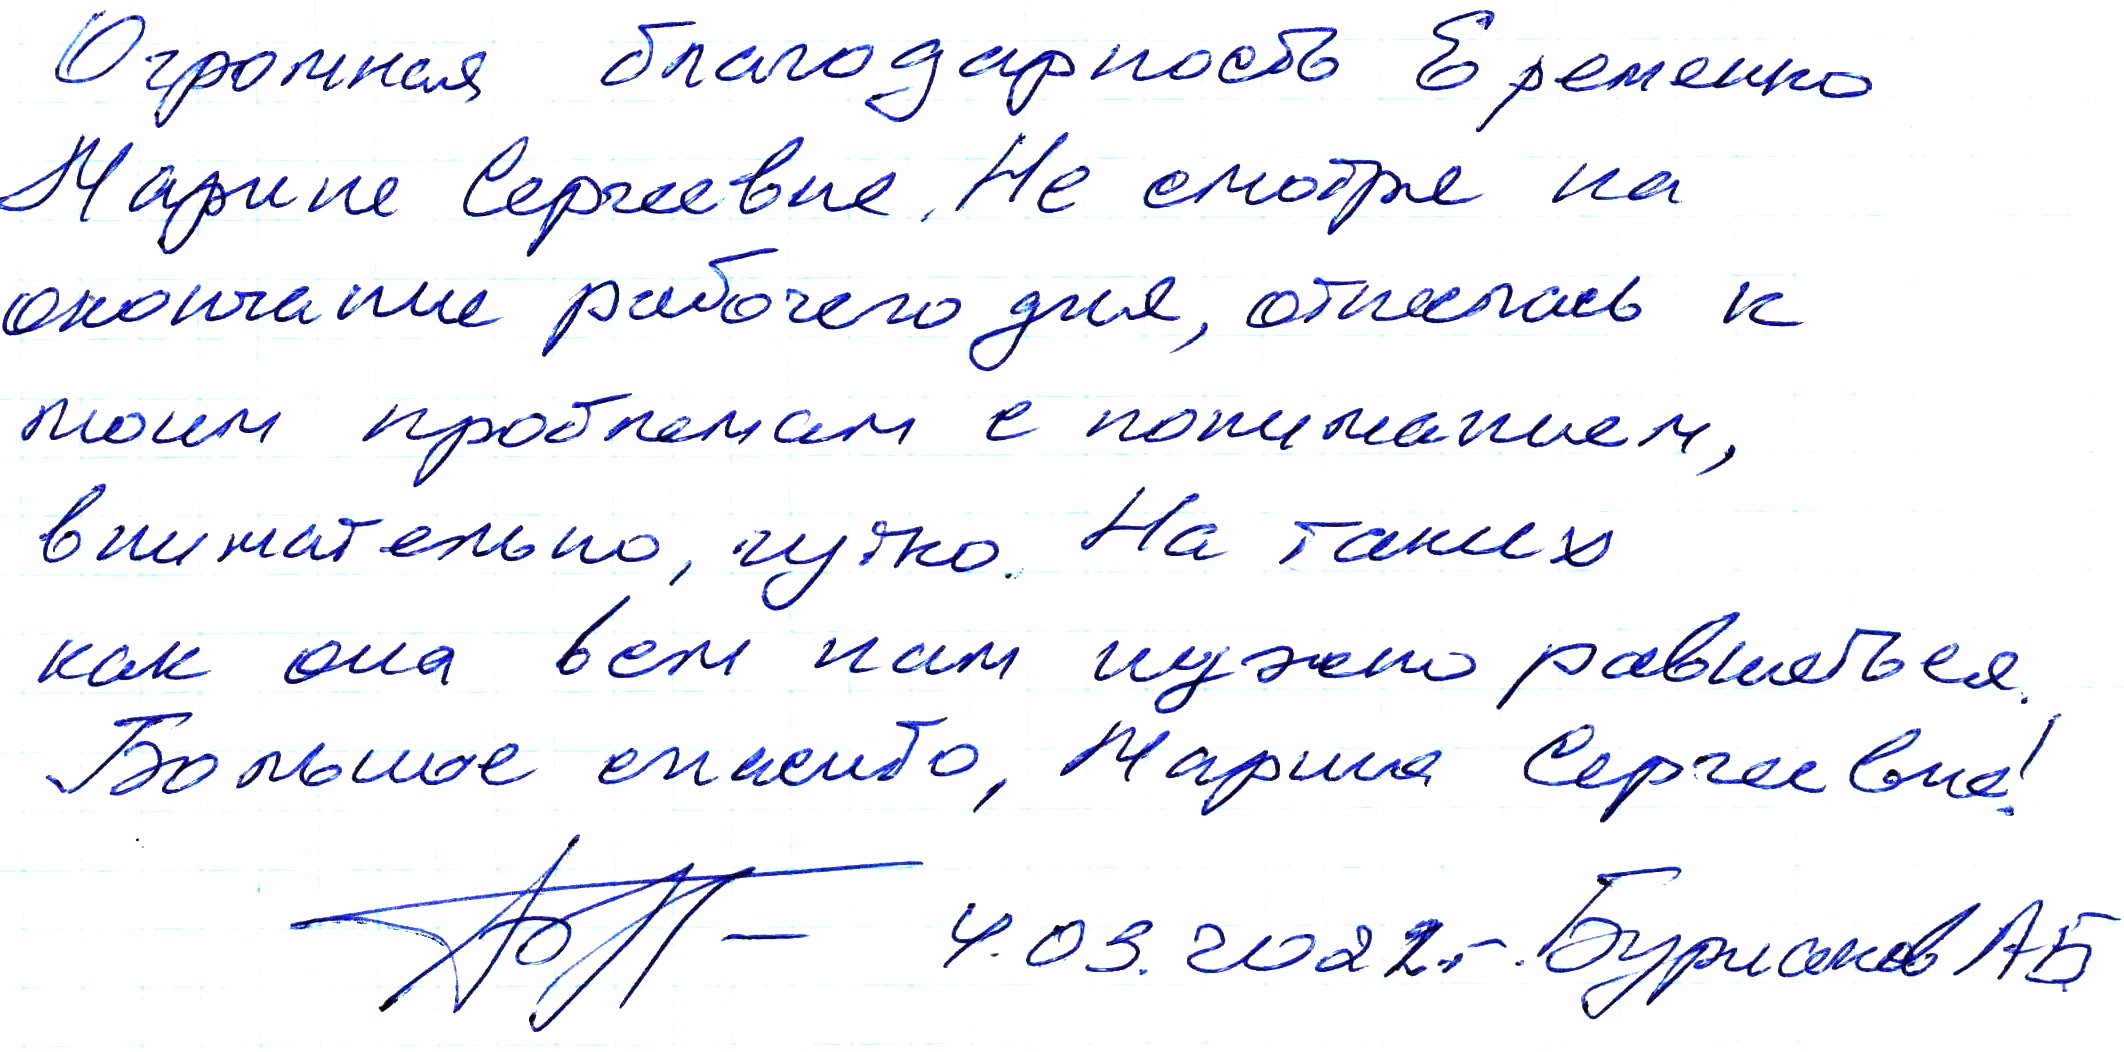 Огромная благодарность Еременко
Марине Сергеевне. Не смотря на
окончание рабочего дня, отнеслась к
моим проблемам с пониманием,
внимательно, чутко. На таких
как она всем нам нужно равняться.
Большое спасибо, Марина Сергеевна!
4.03.2022 г. АБ